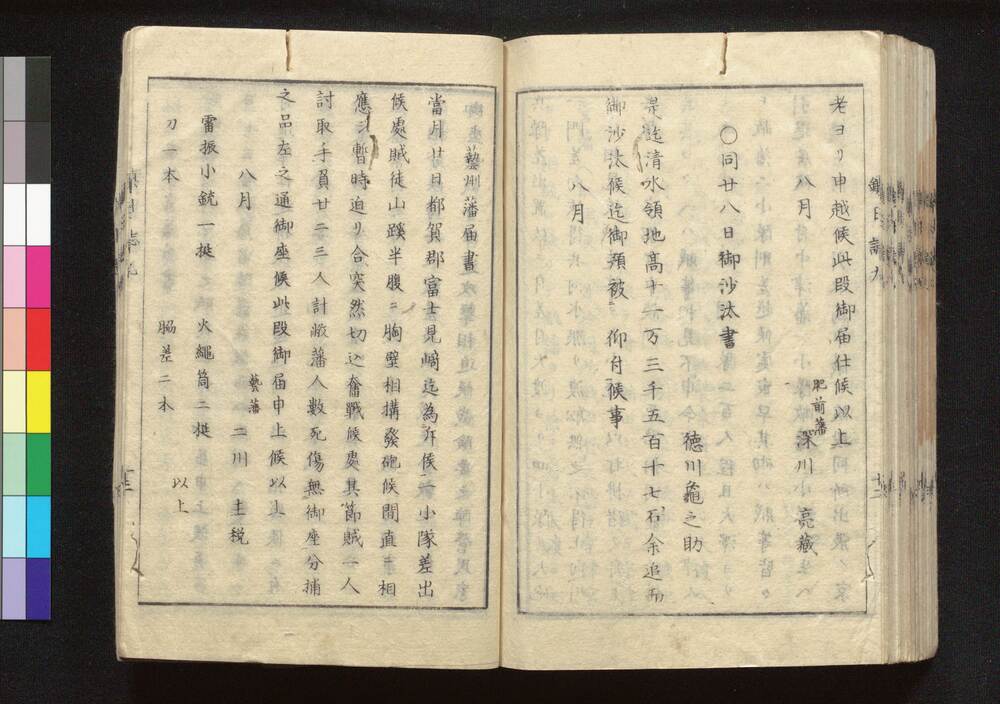 老ヨリ申越候此段御届仕候以上
八月
肥前藩
深川亮蔵
〇同廿八日御沙汰書
徳川龜之助
是迄清水領地高十一万三千五百十七石余追而
御沙汰候迄御預被 仰付候事
八月
藝州藩届書
當月廿日都賀郡富士見﨑迄為斥候一小隊差出
候處賊徒山蹊半腹ニ胸壁相搆發砲候間直ニ相
應シ暫時迫リ合突然切込奮戰候處其節賊一人
討取手負廿二三人計敝藩人数死傷無御座分捕
之品左之通御座候此段御届申上候以上
八月
藝藩
二川主税
雷振小銃一挺
火繩筒二挺
刀一本
脇差二本
以上